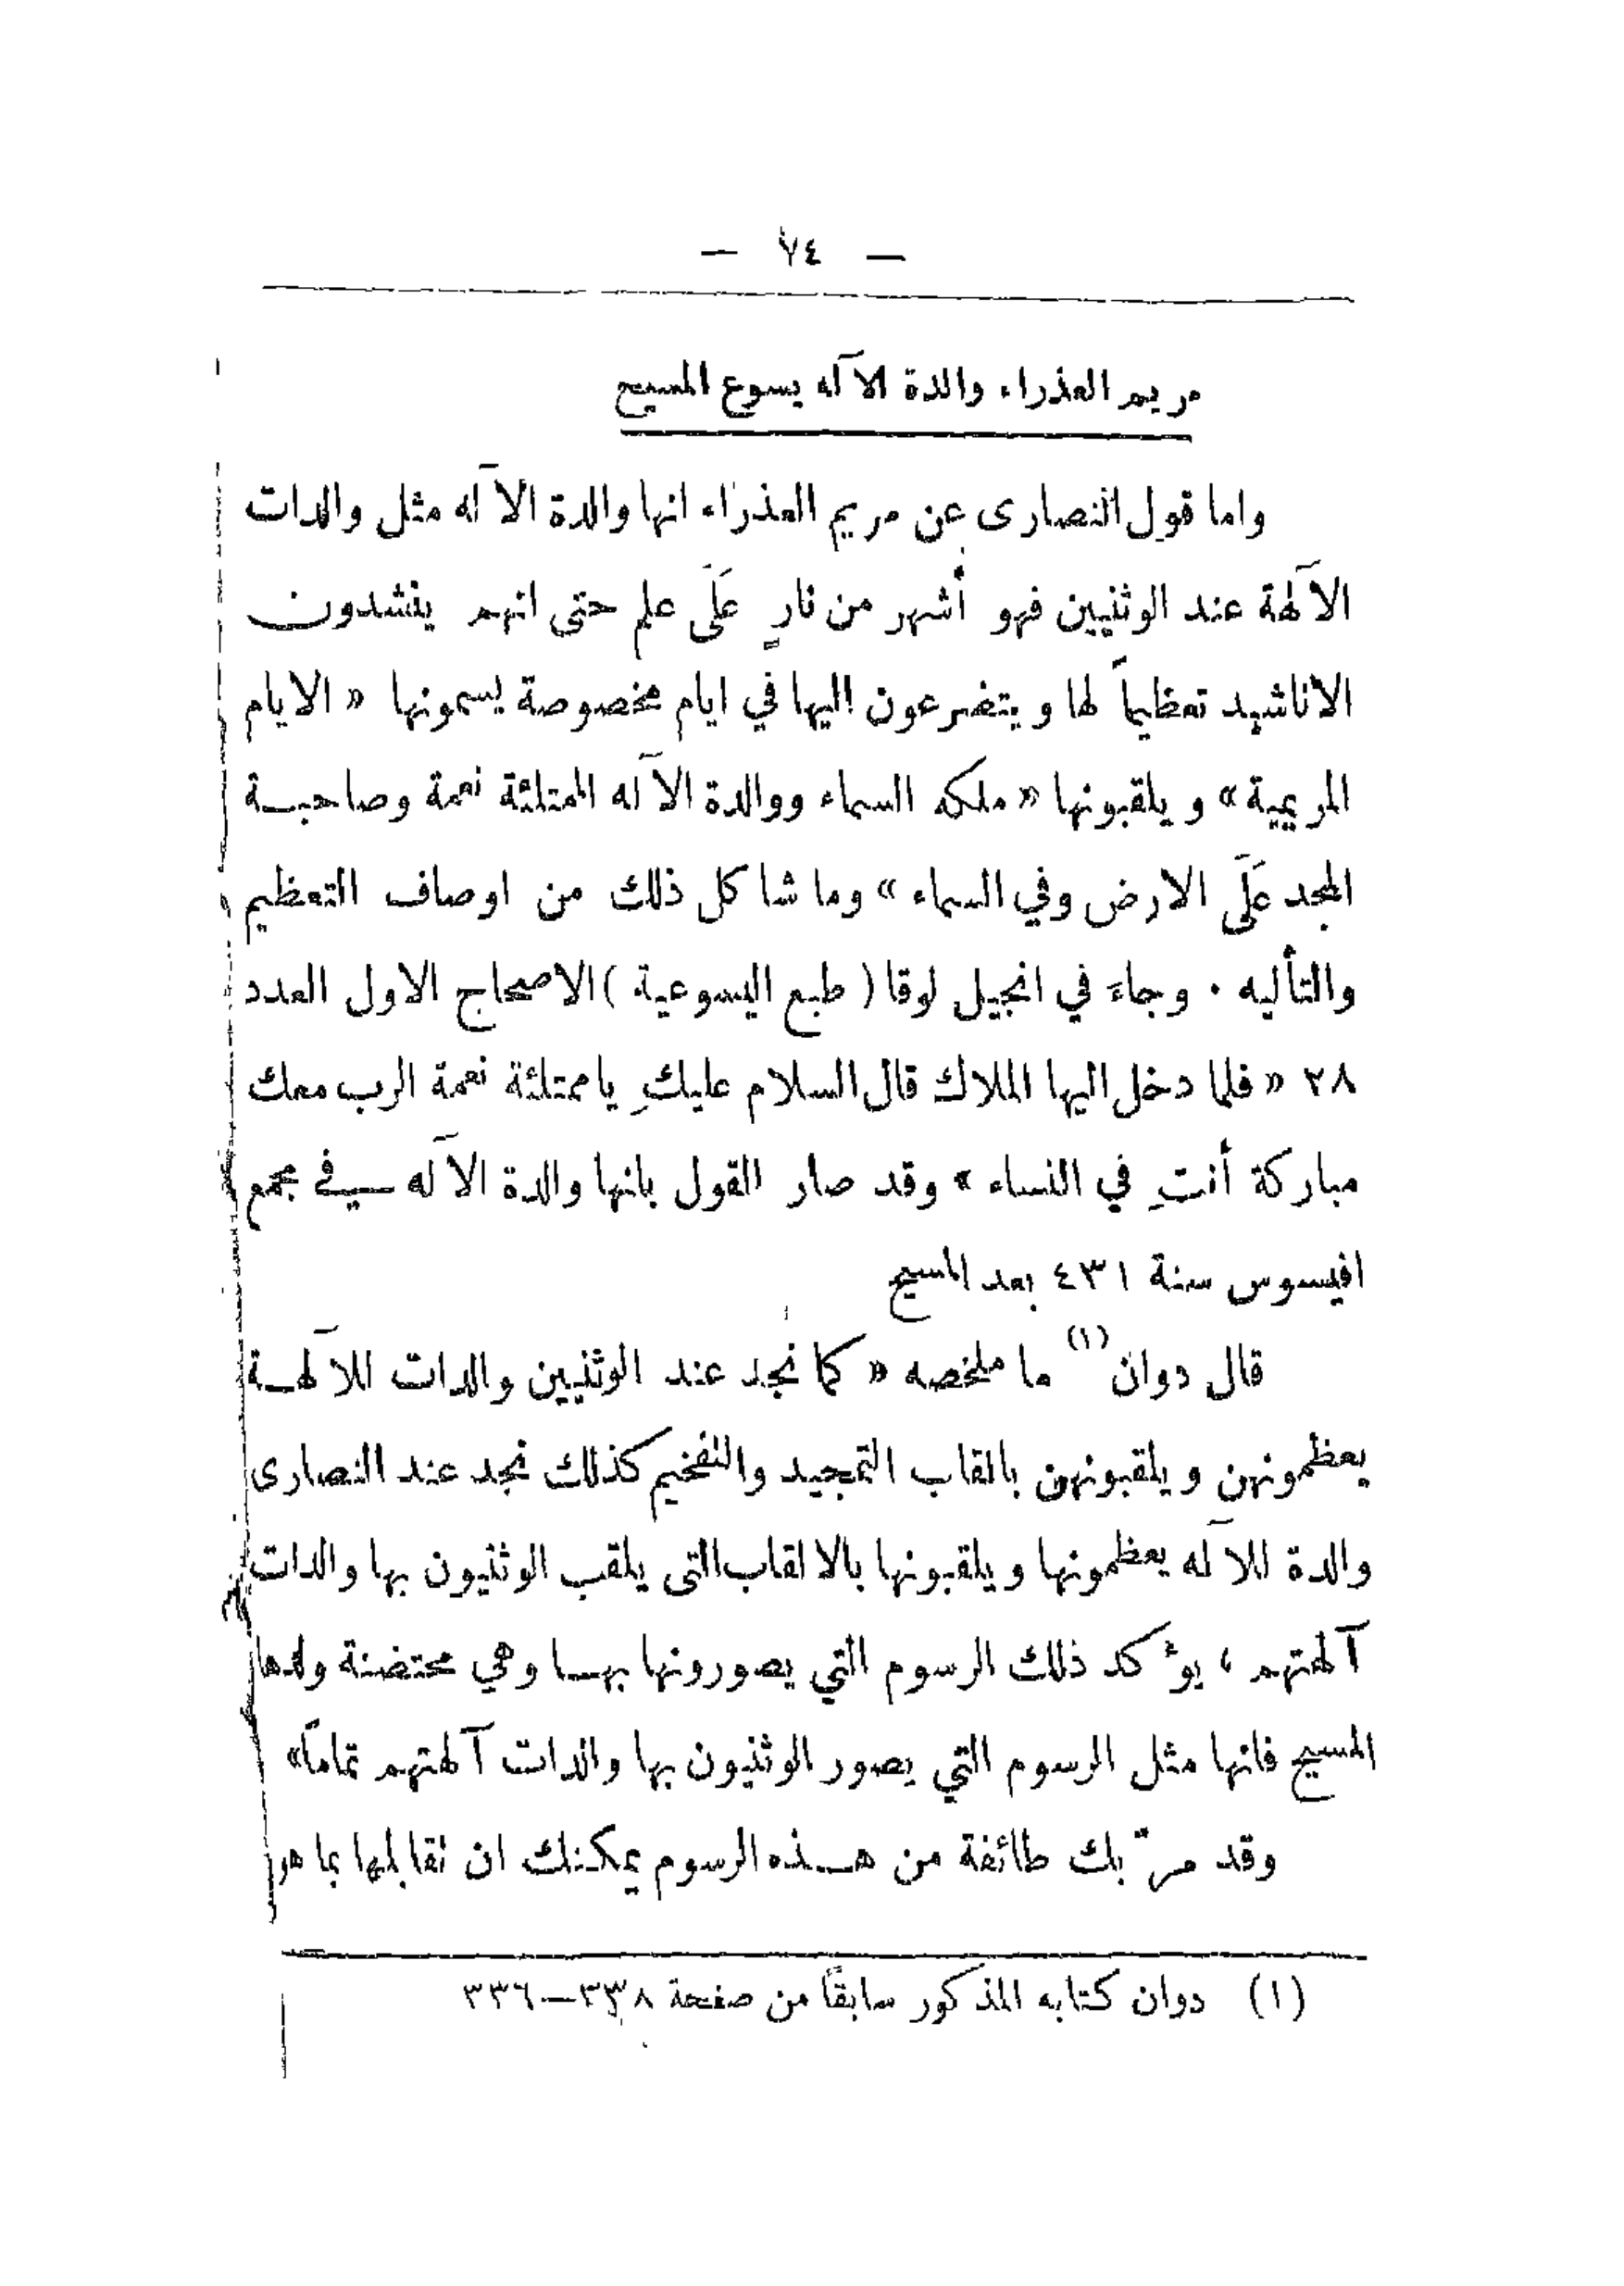 — ٧٤ —
مريم العذراء والدة الآله يسوع المسيح
واما قول النصارى عن مريم العذراء انها والدة الآله مثل والدات
الآلهة عند الوثنيين فهو أشهر من نارٍ عَلَى علم حتى انهم ينشدون
الاناشيد تعظيماً لها ويتضرعون اليها في ايام مخصوصة يسمونها « الايام
المريمية» ويلقبونها « ملكه السماء ووالدة الآله الممتلئة نعمة وصاحبة
المجد عَلَى الارض وفي السماء » وما شاكل ذلك من اوصاف التعظيم
والتأليه . وجاءَ في انجيل لوقا ( طبع اليسوعية ) الاصحاح الاول العدد
٢٨ « فلما دخل اليها الملاك قال السلام عليكِ يا ممتلئة نعمة الرب معك
مباركة أنتِ في النساء » وقد صار القول بانها والدة الآله في مجمع
افيسوس سنة ٤٣١ بعد المسيح
قال دوان (١) ما ملخصه « كما نجد عند الوثنيين والدات للآلهة
يعظمونهن ويلقبونهن بالقاب التمجيد والتفخيم كذلك نجد عند النصارى
والدة للآله يعظمونها ويلقبونها بالالقاب التي يلقب الوثنيون بها والدات
آلهتهم ، يوءكد ذلك الرسوم التي يصورونها بها وهي محتضنة ولدها
المسيح فانها مثل الرسوم التي يصور الوثنيون بها والدات آلهتهم تماماً»
وقد مرّ بك طائفة من هذه الرسوم يمكنك ان تقابلها بما هو
(١) دوان كتابه المذكور سابقاً من صفحة ٣٣٨–٣٣٦